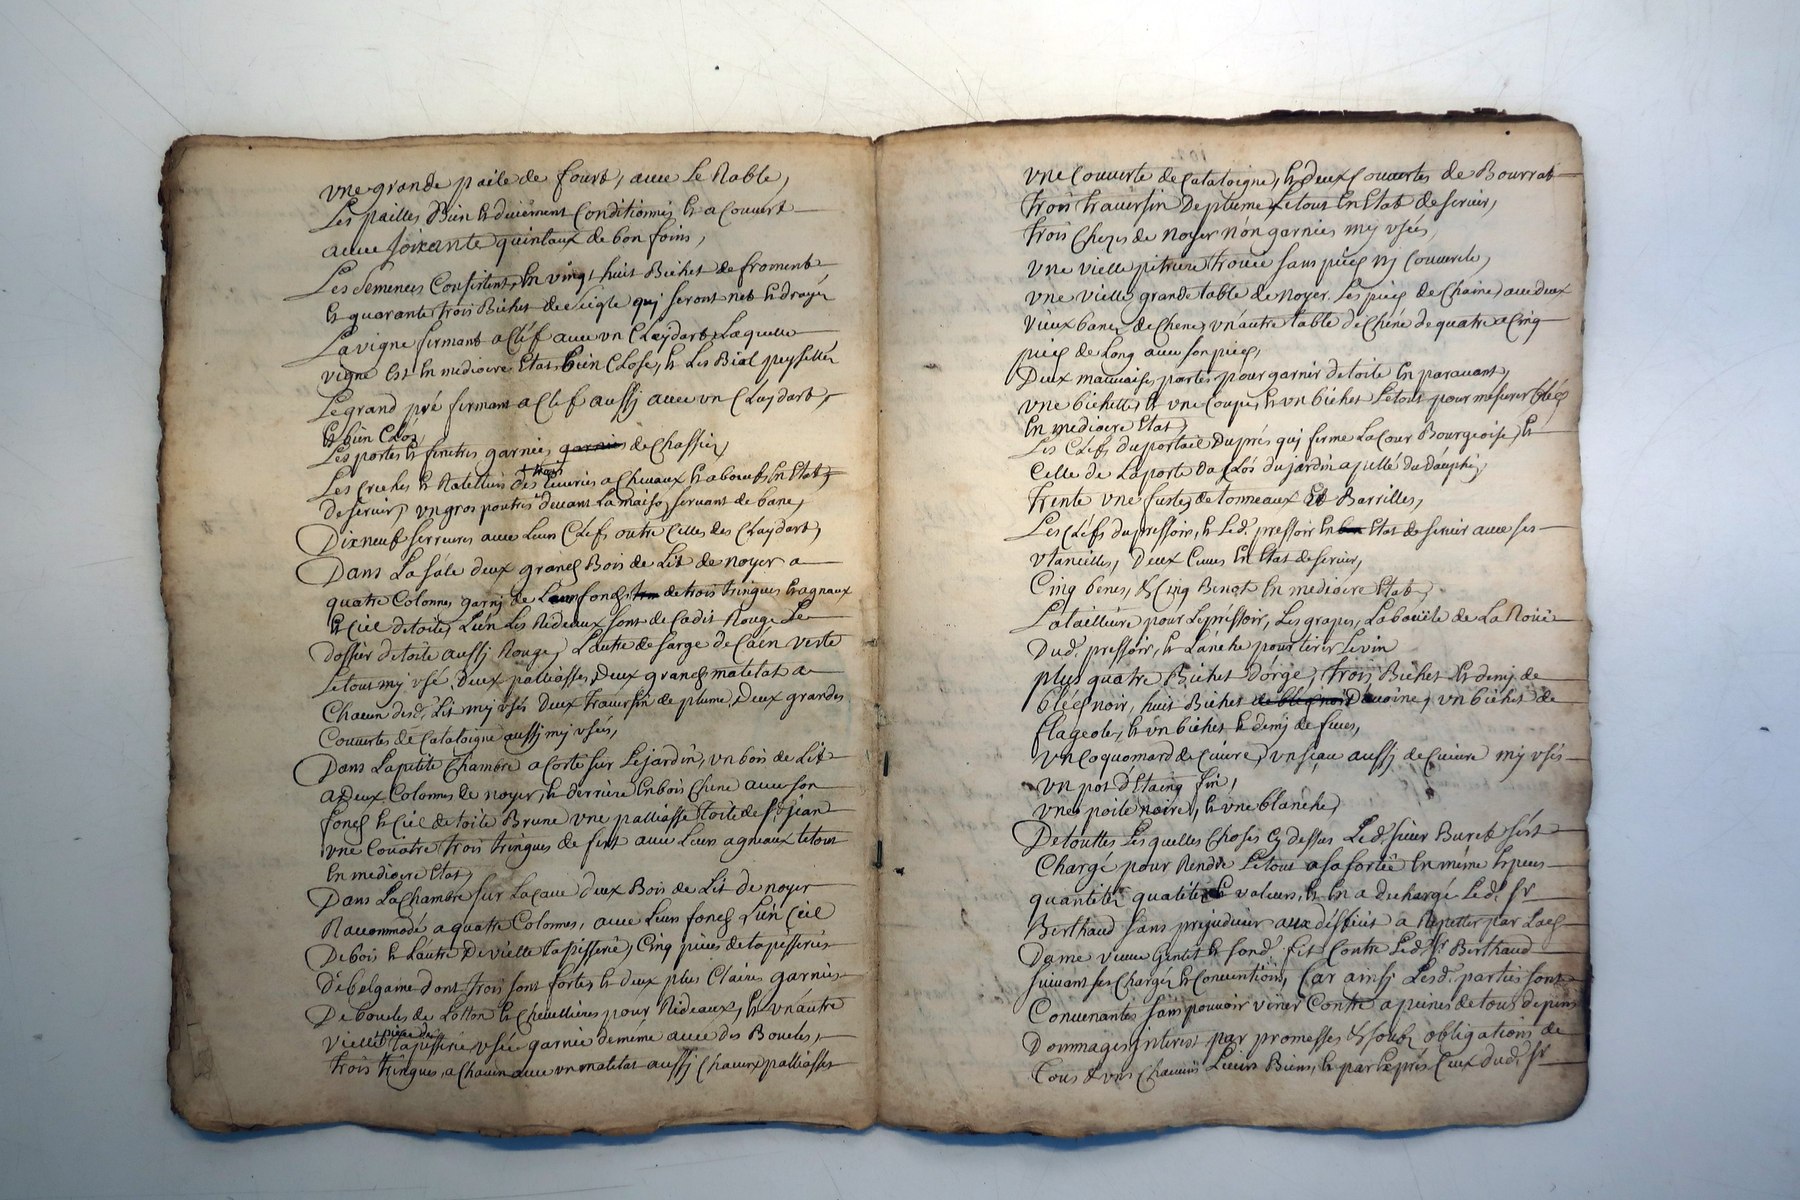 une grande paile de fourt, avec le Rable,
Les pailles Bien et duiement Conditionnés et a Couvert
avec soixante quintaux de bon foins,
Les Semences Consistent, En vingt huit Bichet de froment
et quarante trois Bichet de seigle qui seront net et drayés
La vigne fermant a Clef avec un Claydart, Laquelle
vigne est En mediocre Etat, bien Close, et Les Bial peyssellés
Le grand pré fermant a Clef aussy avec un Claydart,
et bien Clos,
Les portes et fenetres garnies garnies de Chassier,
Les Creches et Ratelliers des trois Ecuries a Chevaux et a boeufs En Etat
de servir, un gros poutres devant La maiso, servant de banc,
Dixneuf serrures avec Leurs Clefs outre Celles des Claydart,
Dans La sale deux grands Bois de Lit de noyer a
quatre Colonnes garny de Leurs fonds de trois tringues et agnaux
et Ciel de toile, L'un Les Rideaux sont de Cadis Rouge Le
dossier de toile aussy Rouge, L'autre de sarge de Caen verte
Le tout my usé, Deux palliasses, Deux grands matelat a
Chacun desd. Lit my usés Deux traversin de plume, Deux grandes
Couvertes de Catalogne aussy my usées,
Dans La petite Chambre a Cotté sur Le jardin, un bois de Lit
a Deux Colonnes de noyer, et derriere En bois Chene avec son
fonds et Ciel de toile Brune une palliasse toile de St jean
une Couatre trois tringues de fert avec Leurs agneaux le tout
En mediocre Etat,
Dans La Chambre sur La Cave deux Bois de Lit de noyer
Racommodé a quatre Colonnes, avec Leurs fonds L'un Ciel
De bois et L'autre De vielle tapisserie, Cinq pieces de tapisseries
De belgame dont trois sont fortes et deux plus Claires garnies
De boucles de Lotton et Chevillieres pour Rideaux, et un autre
vielle piece de tapisserie usée garnie de même avec des Boucles,
trois tringues, a Chacun avec un matelat aussy Chacun palliasses
une Couverte de Catalogne, et deux Couvertes de Bourrat
trois traversin De plume Le tout En Etat de servir,
trois Cheses de Noyer non garnies my usées,
une vielle petriere trouée sans pieds ny Couvercle,
une vielle grande table de Noyer Les pieds de Chaine, avec deux
vieux bancs de Chene, un autre table de Chêne de quatre a Cinq
pieds de Long avec son pieds,
Deux mauvaises portes pour garnir de toile En paravant,
une bichette, et une Coupe, et un bichet Le tout pour mesurer blés
En mediocre Etat,
Les Clefs du portail Du prés qui ferme La Cour Bourgeoise, et
Celle de La porte Du Clos du jardin apellé du Dauphin,
trente une fustes de tonneaux Et Barrilles,
Les Clefs du pressoir, et Led. pressoir En Etat de servir avec ses
utancilles, Deux Cuves En Etat de servir,
Cinq benes, et Cinq Benot En mediocre Etat,
La tailleure pour Le pressoir, Les grapes, La bouëte de La Rouë
Dud. pressoir, et L'anche pour tirer Le vin
plus quatre Bichet d'orge, trois Bichet et demy de
bléd noir, huit Bichet de bled noir D'avoine, un bichet de
flageole, et un bichet et demy de feves,
un Coquomard de Cuivre, un seau aussy de Cuivre my usés
un pot d'Etaing fin,
une poile noire, et une blanche,
De touttes Lesquelles Choses Cy dessus Led. sieur Buret s'est
Chargé pour Rendre Le tout a sa sortie En même Espece
quantités qualités et valeurs, et En a dechargé Led. Sr
Berthaud sans prejudicier aux défficit a Repetter par Lad.
Dame veuve Gentet et fond. fit Contre Led. Sr Berthaud
suivant ses Charges et Conventions, Car ainsy Lesd. parties sont
Convenantes sans pouvoir venir Contre a peines de tous depens
Dommages interest par promesses et sous obligations de
Tous et uns Chacuns Leurs Biens, et par Exprés Ceux dud. Sr